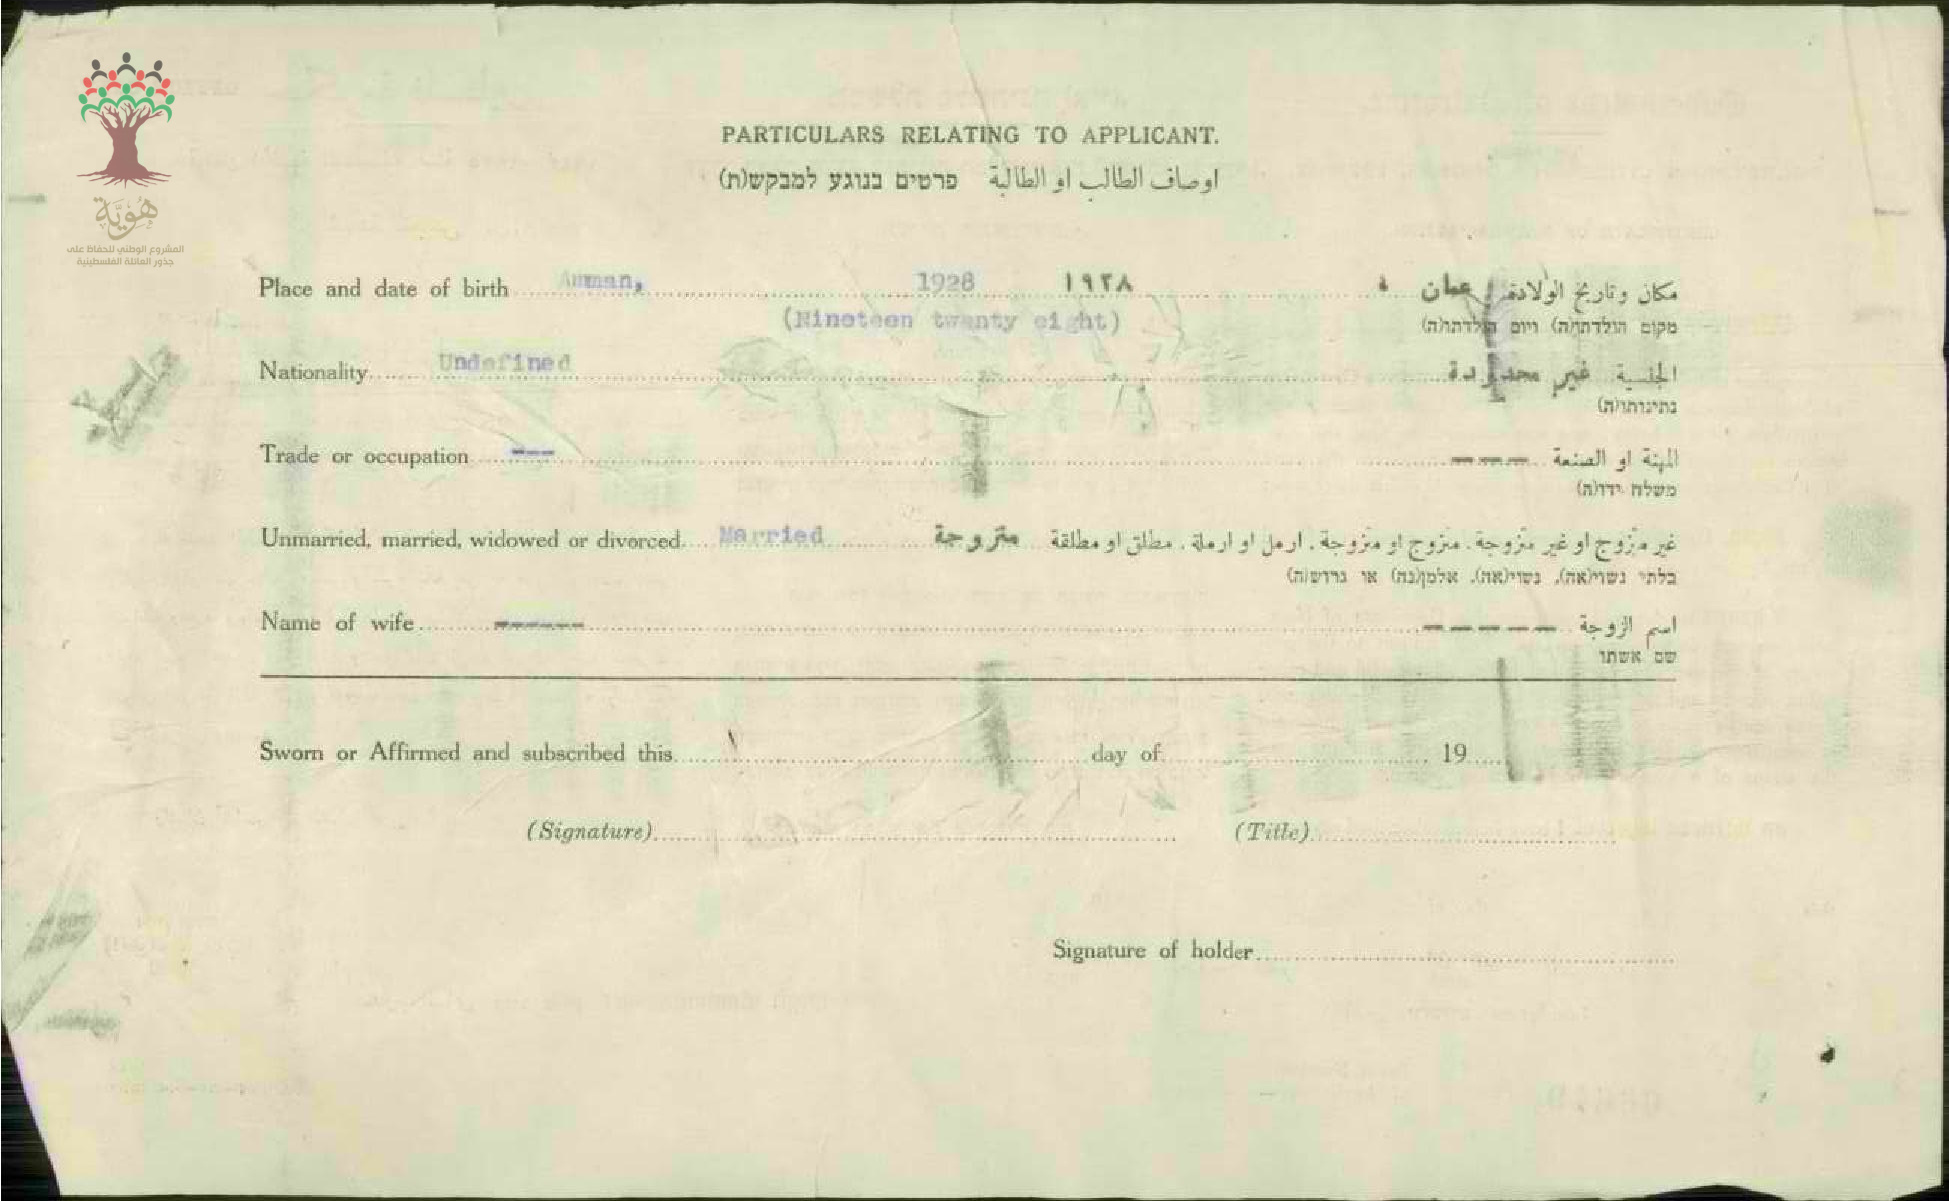 هُوِيَّة
المشروع الوطني للحفاظ على
جذور العائلة الفلسطينية
PARTICULARS RELATING TO APPLICANT.
اوصاف الطالب او الطالبة פרטים בנוגע למבקש(ת)
Place and date of birth Amman, 1928 ١٩٢٨ عمان مكان وتاريخ الولادة
(Nineteen twenty eight) מקום הולדתו(ה) ויום הולדתו(ה)
Nationality Undefined غير محدودة الجنسية
נתינותו(ה)
Trade or occupation --- --- المهنة او الصنعة
משלח ידו(ה)
Unmarried, married, widowed or divorced Married متزوجة غير متزوج او غير متزوجة، متزوج او متزوجة، ارمل او ارملة، مطلق او مطلقة
בלתי נשוי(אה), נשוי(אה), אלמן(נה) או גרוש(ה)
Name of wife ------ ----- اسم الزوجة
שם אשתו
Sworn or Affirmed and subscribed this day of 19
(Signature) (Title)
Signature of holder